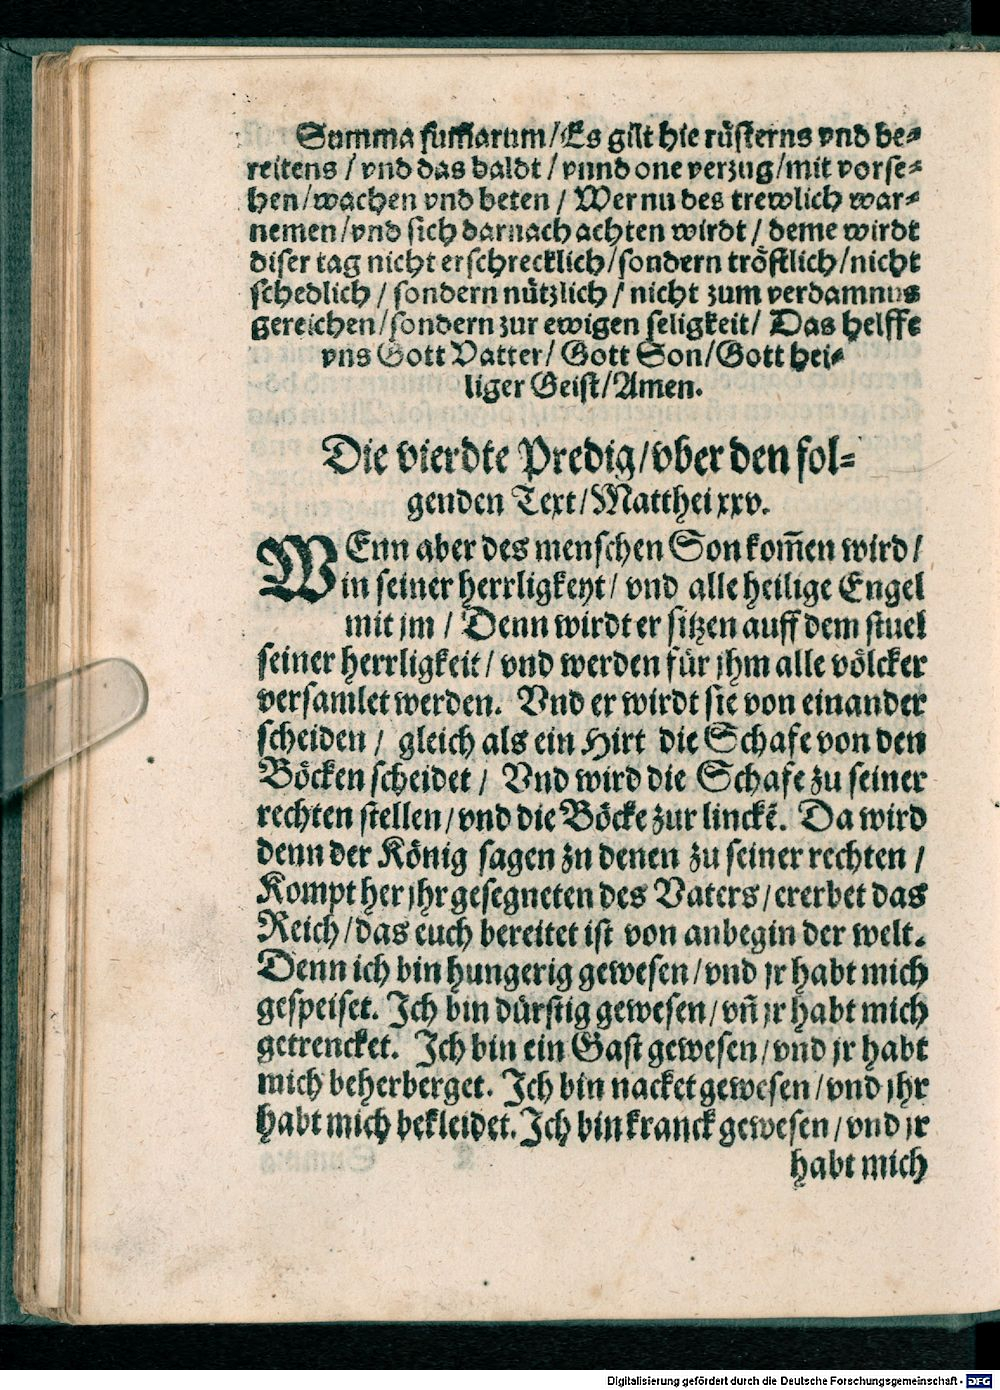 Summa sum̃arum/Es gilt hie rüsterns vnd be⸗
reitens / vnd das baldt / vnnd one verzug/mit vorse⸗
hen/wachen vnd beten / Wer nu des trewlich war⸗
nemen/vnd sich darnach achten wirdt / deme wirdt
diser tag nicht erschrecklich/sondern tröstlich/nicht
schedlich / sondern nützlich / nicht zum verdamnus
gereichen/sondern zur ewigen seligkeit/ Das helffe
vns Gott Vatter/ Gott Son/Gott hei⸗
liger Geist/Amen.
Die vierdte Predig/vber den fol⸗
genden Text/Matthei xxv.
WEnn aber des menschen Son kom̃en wird/
in seiner herrligkeyt/ vnd alle heilige Engel
mit jm / Denn wirdt er sitzen auff dem stuel
seiner herrligkeit/ vnd werden für jhm alle völcker
versamlet werden. Vnd er wirdt sie von einander
scheiden / gleich als ein Hirt die Schafe von den
Böcken scheidet / Vnd wird die Schafe zu seiner
rechten stellen/vnd die Böcke zur linckẽ. Da wird
denn der König sagen zu denen zu seiner rechten /
Kompt her jhr gesegneten des Vaters/ererbet das
Reich/das euch bereitet ist von anbegin der welt.
Denn ich bin hungerig gewesen/vnd jr habt mich
gespeiset. Ich bin dürstig gewesen/vñ jr habt mich
getrencket. Ich bin ein Gast gewesen/vnd jr habt
mich beherberget. Ich bin nacket gewesen/vnd jhr
habt mich bekleidet. Ich bin kranck gewesen/vnd jr
habt mich
Digitalisierung gefördert durch die Deutsche Forschungsgemeinschaft - DFG